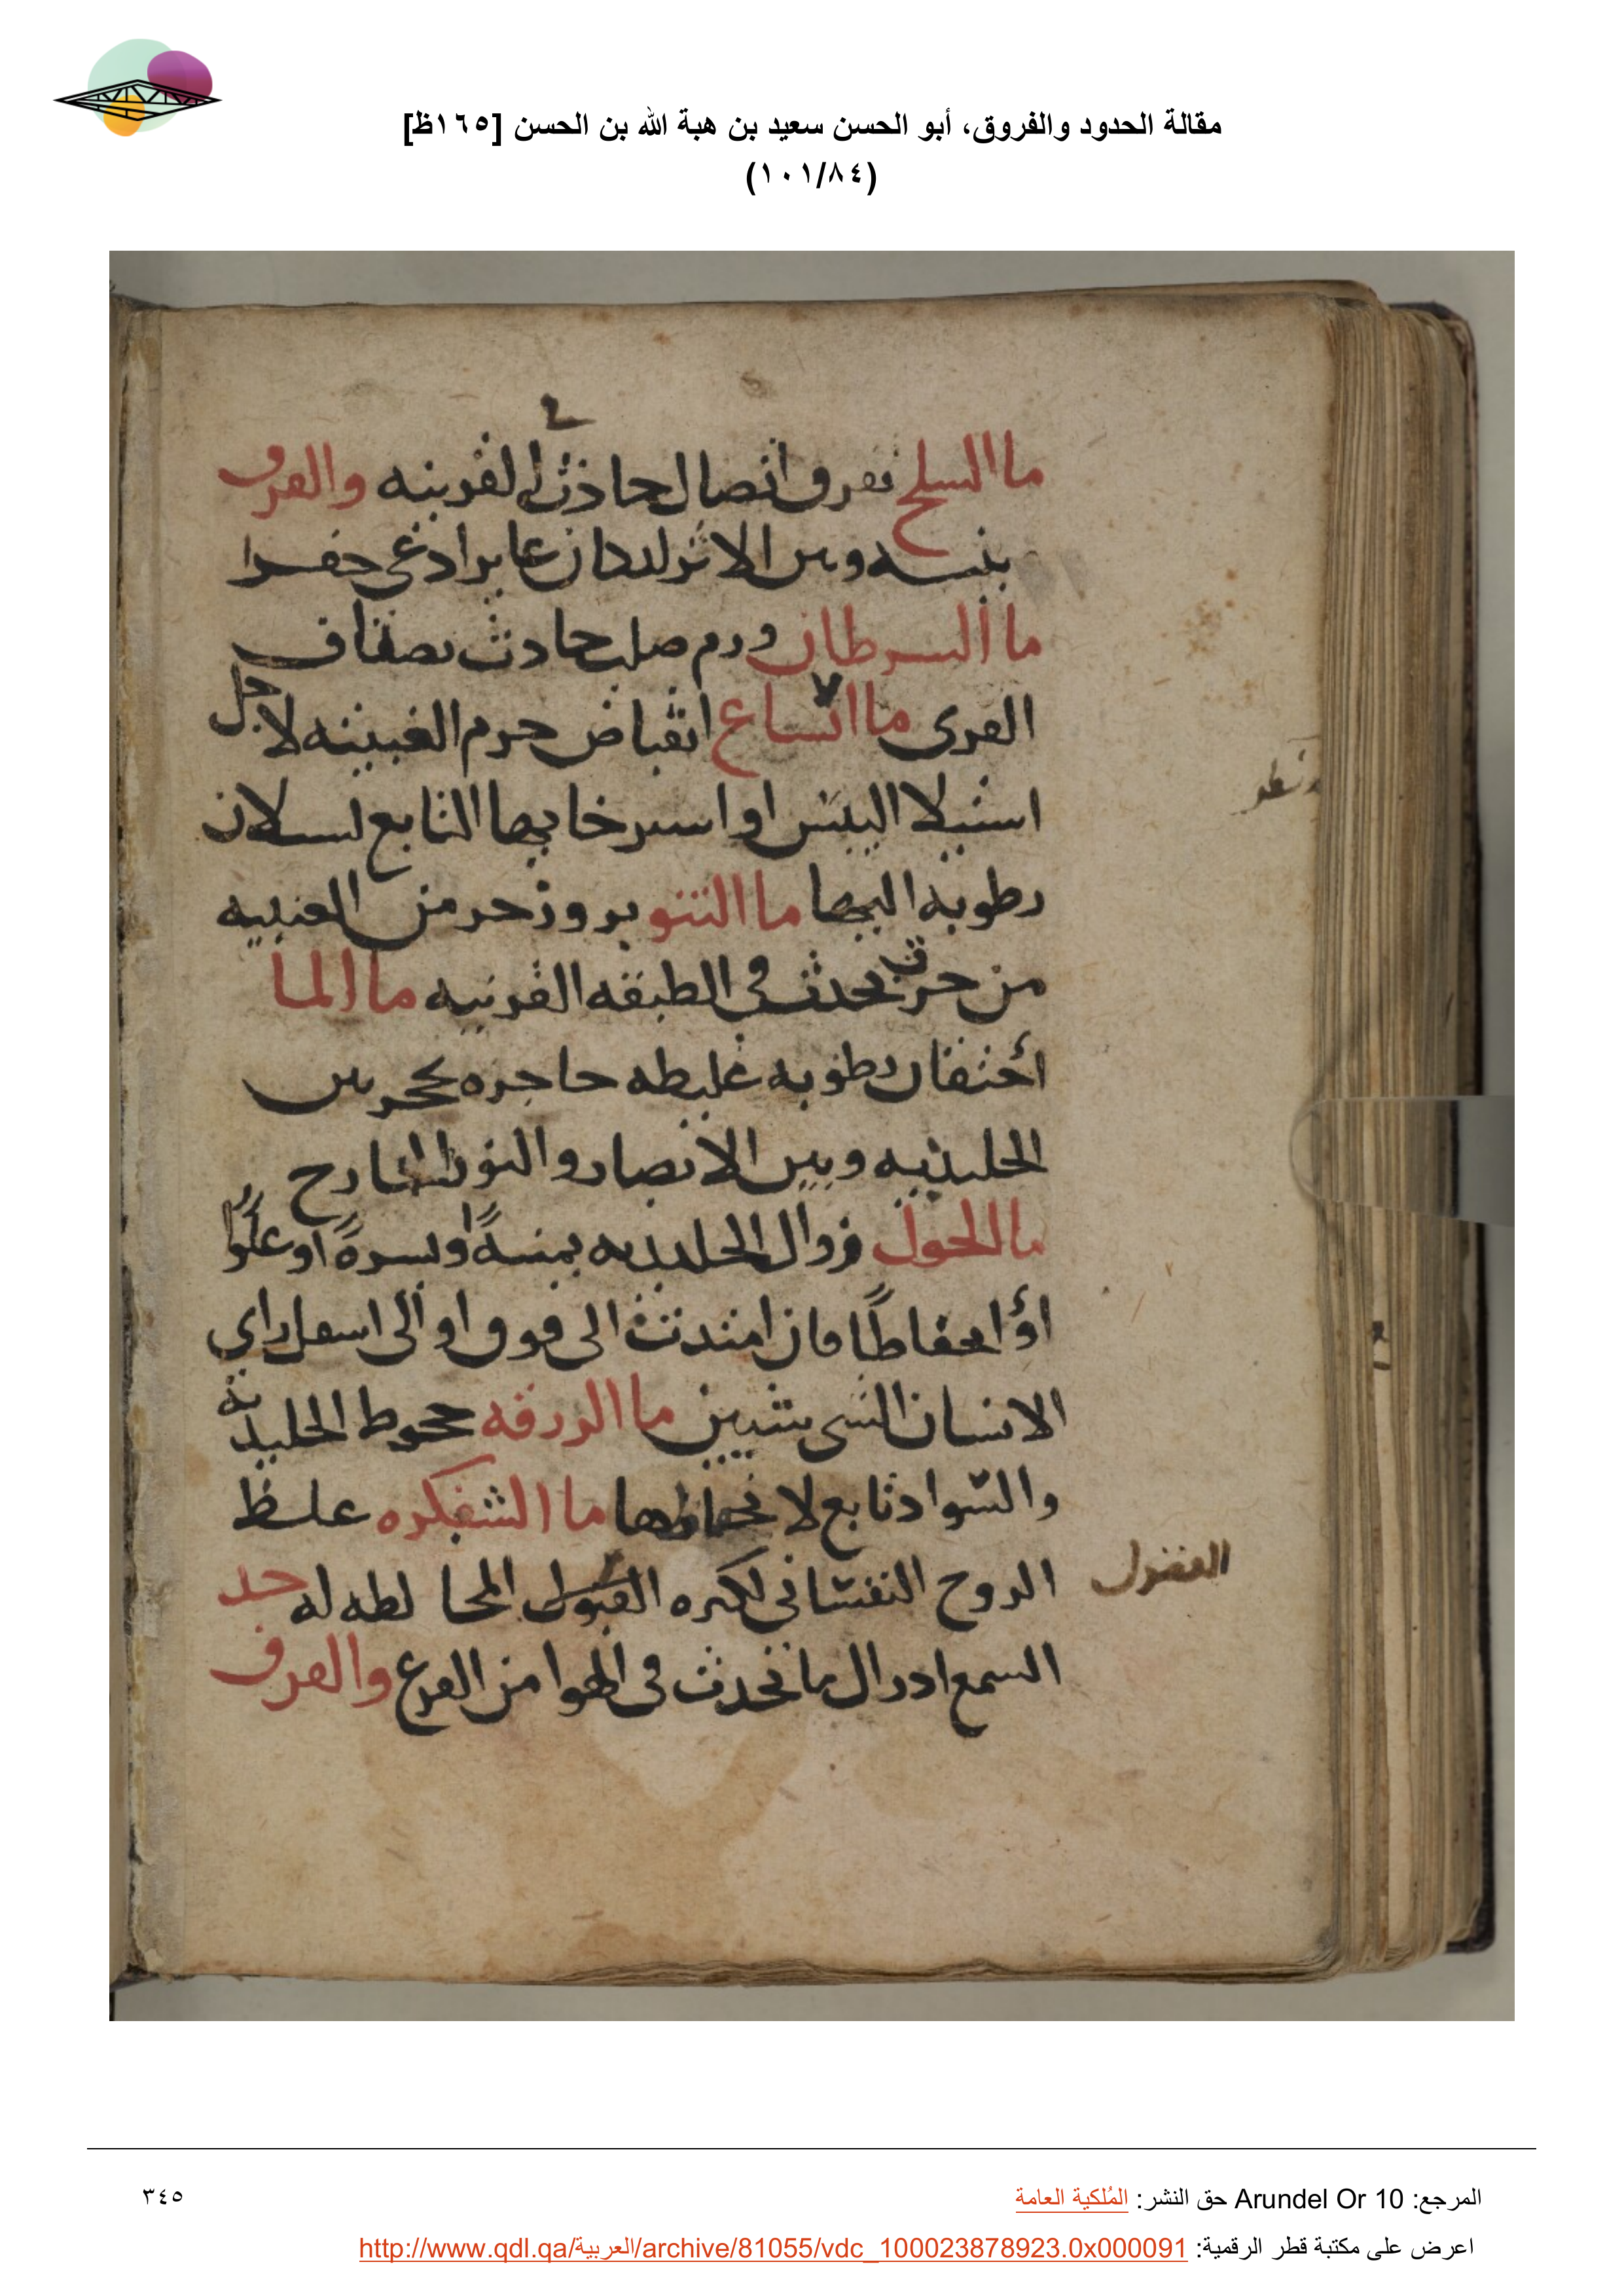 مقالة الحدود والفروق، أبو الحسن سعيد بن هبة الله بن الحسن [١٦٥ظ]
(١٠١/٨٤)
ما السلح تفرق اتصال حادث في القرنيه والفرق
بينه وبين الاثر ان كان غايرا دعي حفرا
ما السرطان ورم صلب حادث بصفاق
القرى ما اتساع انقباض جرم العنبيه لاجل
استيلا اليبس او استرخايها التابع لسيلان
رطوبه اليها ما النتو بروز جز من العنبيه
من خرق يحدث في الطبقه القرنيه ما الما
أحتقان رطوبه غليظه حاجزه تحجز بين
الجليديه وبين الابصار والنور الخارج
ما الحول زوال الجليديه يمنةً او يسرةً او علوًا
أو انحفاظًا فان امتدت الى فوق او الى اسفل راي
الانسان الشي شيين ما الزرقه جحوظ الجليدية
والسواد تابع لانحفاظها ما الشبكره غلظ
الروح النفساني لكثره الفضول المخالطه له حد
الفضول
السمع ادراك ما يحدث في الهوا من القرع والفرق
المرجع: Arundel Or 10 حق النشر: المُلكية العامة
٣٤٥
اعرض على مكتبة قطر الرقمية: http://www.qdl.qa/العربية/archive/81055/vdc_100023878923.0x000091